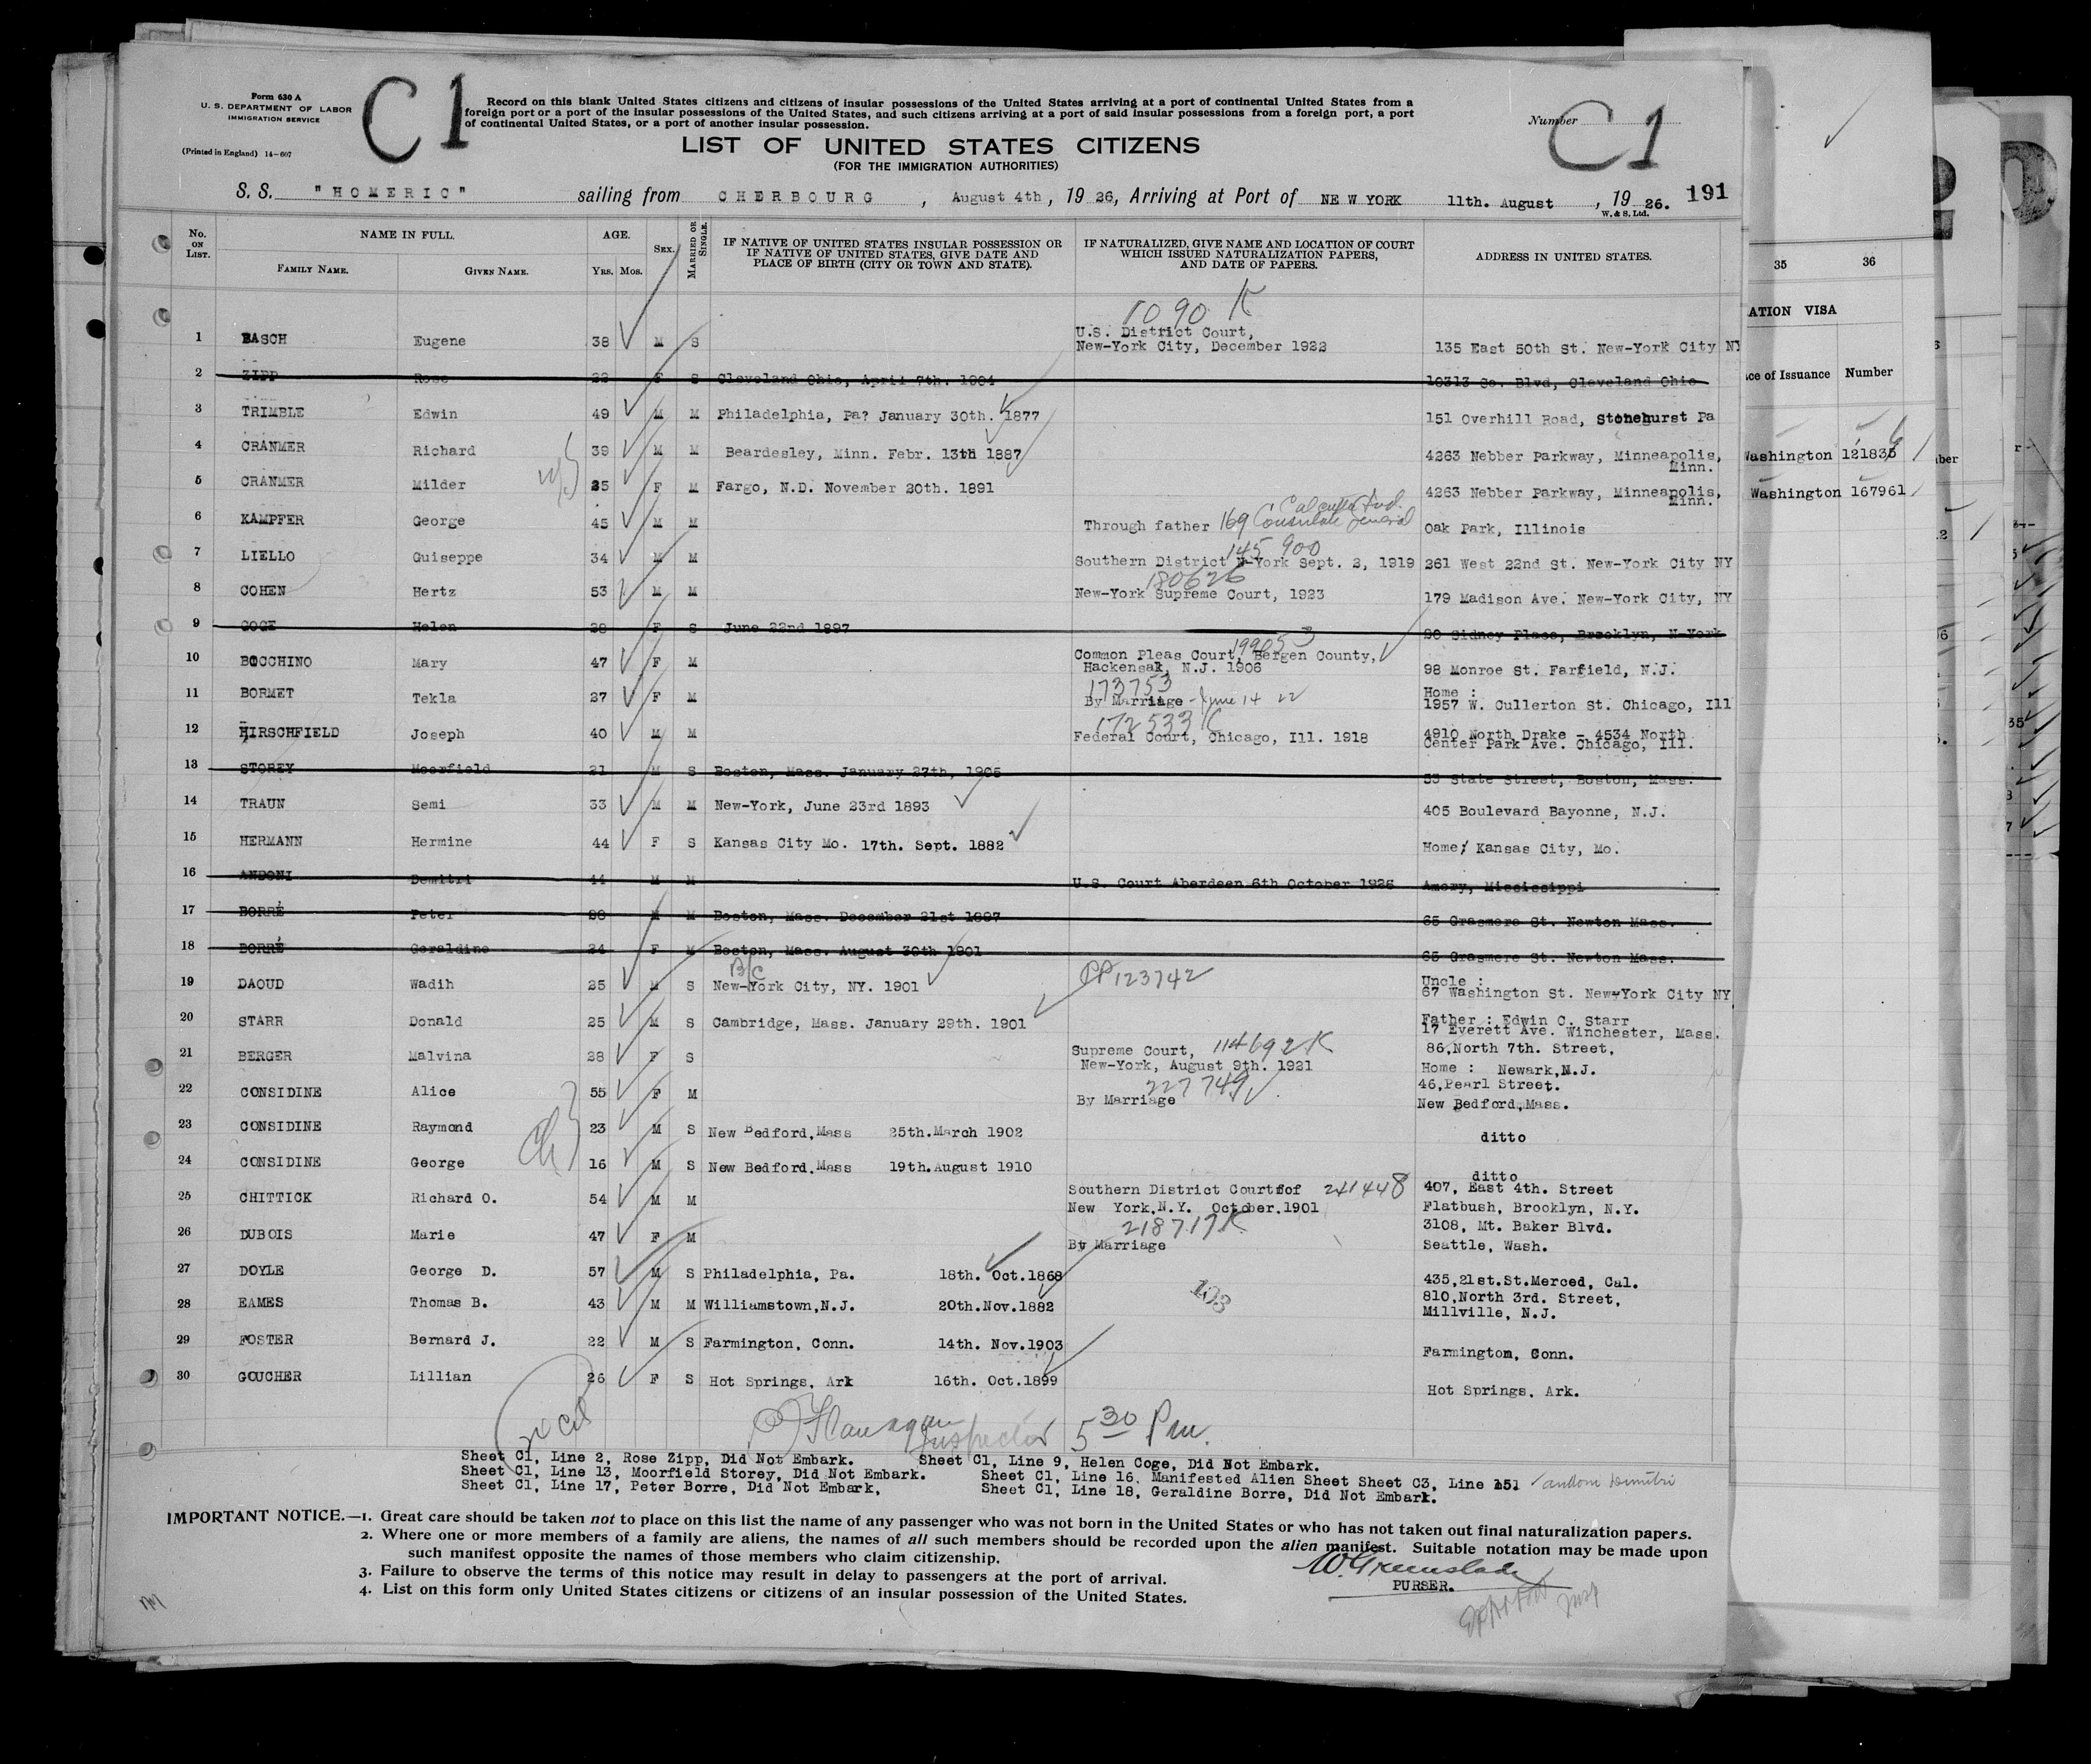 Form 630 A
U. S. DEPARTMENT OF LABOR
IMMIGRATION SERVICE
(Printed in England) 14-607
C1
Record on this blank United States citizens and citizens of insular possessions of the United States arriving at a port of continental United States from a
foreign port or a port of the insular possessions of the United States, and such citizens arriving at a port of said insular possessions from a foreign port, a port
of continental United States, or a port of another insular possession.
Number
C1
LIST OF UNITED STATES CITIZENS
(FOR THE IMMIGRATION AUTHORITIES)
S. S. "HOMERIC" sailing from CHERBOURG, August 4th, 1926, Arriving at Port of NEW YORK 11th. August, 1926. 191
W. & S. Ltd.
No. ON LIST.
NAME IN FULL.
FAMILY NAME.
GIVEN NAME.
AGE.
YRS. MOS.
SEX.
MARRIED OR SINGLE.
IF NATIVE OF UNITED STATES INSULAR POSSESSION OR
IF NATIVE OF UNITED STATES, GIVE DATE AND
PLACE OF BIRTH (CITY OR TOWN AND STATE).
IF NATURALIZED, GIVE NAME AND LOCATION OF COURT
WHICH ISSUED NATURALIZATION PAPERS,
AND DATE OF PAPERS.
ADDRESS IN UNITED STATES.
35 36
ATION VISA
ce of Issuance Number
1090 K
1 BASCH Eugene 38 M S U.S. District Court,
New-York City, December 1922 135 East 50th St. New-York City NY
2 ZIPP Rose 22 F S Cleveland Ohio, April 7th. 1904 10313 So. Blvd, Cleveland Ohio
3 TRIMBLE Edwin 49 M M Philadelphia, Pa? January 30th. 1877 151 Overhill Road, Stonehurst Pa
4 CRANMER Richard 39 M M Beardesley, Minn. Febr. 13th 1887 4263 Nebber Parkway, Minneapolis,
Minn.
Washington 121835
5 CRANMER Milder 35 F M Fargo, N.D. November 20th. 1891 4263 Nebber Parkway, Minneapolis,
Minn.
Washington 167961
6 KAMPFER George 45 M M Through father 169 Calcutta Ind. Consulate General Oak Park, Illinois
145900
7 LIELLO Guiseppe 34 M M Southern District N-York Sept. 2, 1919 261 West 22nd St. New-York City NY
180626
8 COHEN Hertz 53 M M New-York Supreme Court, 1923 179 Madison Ave. New-York City, NY
9 COGE Helen 28 F S June 22nd 1897 90 Sidney Place, Brooklyn, N-York
199053
10 BOCCHINO Mary 47 F M Common Pleas Court, Bergen County,
Hackensak, N.J. 1906 98 Monroe St. Farfield, N.J.
173753
11 BORMET Tekla 27 F M By Marriage - June 14 22 Home :
1957 W. Cullerton St. Chicago, Ill
172533 K
12 HIRSCHFIELD Joseph 40 M M Federal Court, Chicago, Ill. 1918 4910 North Drake - 4534 North
Center Park Ave. Chicago, Ill.
13 STOREY Moorfield 21 M S Boston, Mass. January 27th, 1905 53 State Street, Boston, Mass.
14 TRAUN Semi 33 M M New-York, June 23rd 1893 405 Boulevard Bayonne, N.J.
15 HERMANN Hermine 44 F S Kansas City Mo. 17th. Sept. 1882 Home: Kansas City, Mo.
16 ANDONI Demitri 44 M M U.S. Court Aberdeen 6th October 1926 Amory, Mississippi
17 BORRÉ Peter 28 M M Boston, Mass. December 21st 1897 65 Grasmere St. Newton Mass.
18 BORRÉ Geraldine 24 F M Boston, Mass. August 30th 1901 65 Grasmere St. Newton Mass.
B/C
19 DAOUD Wadih 25 M S New-York City, NY. 1901 PP123742 Uncle :
67 Washington St. New-York City NY
20 STARR Donald 25 M S Cambridge, Mass. January 29th. 1901 Father : Edwin C. Starr
17 Everett Ave. Winchester, Mass.
21 BERGER Malvina 28 F S Supreme Court, 114692 K
New-York, August 9th. 1921 86,North 7th. Street,
Home : Newark,N.J.
227749
22 CONSIDINE Alice 55 F M By Marriage 46,Pearl Street.
New Bedford,Mass.
23 CONSIDINE Raymond 23 M S New Bedford,Mass 25th.March 1902 ditto
24 CONSIDINE George 16 M S New Bedford.Mass 19th.August 1910 ditto
25 CHITTICK Richard O. 54 M M Southern District Court of 241448
New York,N.Y. October.1901 407, East 4th. Street
Flatbush, Brooklyn, N.Y.
218717 K
26 DUBOIS Marie 47 F M By Marriage 3108, Mt. Baker Blvd.
Seattle, Wash.
27 DOYLE George D. 57 M S Philadelphia, Pa. 18th. Oct.1868 435,21st.St.Merced, Cal.
28 EAMES Thomas B. 43 M M Williamstown,N.J. 20th.Nov.1882 103 810,North 3rd. Street,
Millville, N.J.
29 FOSTER Bernard J. 22 M S Farmington, Conn. 14th. Nov.1903 Farmington, Conn.
30 GOUCHER Lillian 26 F S Hot Springs, Ark 16th. Oct.1899 Hot Springs, Ark.
Flanagan Inspector 5 30 Pm.
Sheet C1, Line 2, Rose Zipp, Did Not Embark. Sheet C1, Line 9, Helen Coge, Did Not Embark.
Sheet C1, Line 13, Moorfield Storey, Did Not Embark. Sheet C1, Line 16. Manifested Alien Sheet Sheet C3, Line 151 Andoni Demitri
Sheet C1, Line 17, Peter Borre, Did Not Embark, Sheet C1, Line 18, Geraldine Borre, Did Not Embark.
IMPORTANT NOTICE.—1. Great care should be taken not to place on this list the name of any passenger who was not born in the United States or who has not taken out final naturalization papers.
2. Where one or more members of a family are aliens, the names of all such members should be recorded upon the alien manifest. Suitable notation may be made upon
such manifest opposite the names of those members who claim citizenship.
3. Failure to observe the terms of this notice may result in delay to passengers at the port of arrival.
4. List on this form only United States citizens or citizens of an insular possession of the United States.
W. Greenslade
PURSER.